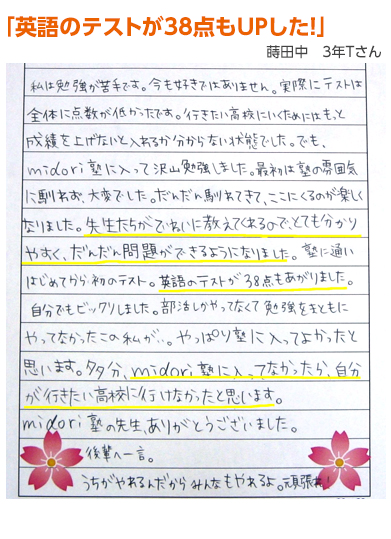 「英語のテストが38点もUPした!」
蒔田中　3年Tさん
私は勉強が苦手です。今も好きではありません。実際にテストは
全体に点数が低かったです。行きたい高校にいくためにはもっと
成績を上げないと入れるか分からない状態でした。でも、
midori塾に入って沢山勉強しました。最初は塾の雰囲気
に馴れねず、大変でした。だんだん馴れてきて、ここにくるのが楽しく
なりました。先生たちがていねいに教えてくれるのでとても分かり
やすく、だんだん問題ができるようになりました。塾に通い
はじめてから初のテスト。英語のテストが38点もあがりました。
自分でもビックリしました。部活しかやってなくて勉強をまともに
やってなかったこの私が…。やっぱり塾に入ってよかったと
思います。多分、midori塾に入ってなかったら、自分
が行きたい高校に行けなかったと思います。
midori塾の先生、ありがとうございました。
後輩へ一言。
うちがやれるんだからみんなもやれるよ。頑張れ!